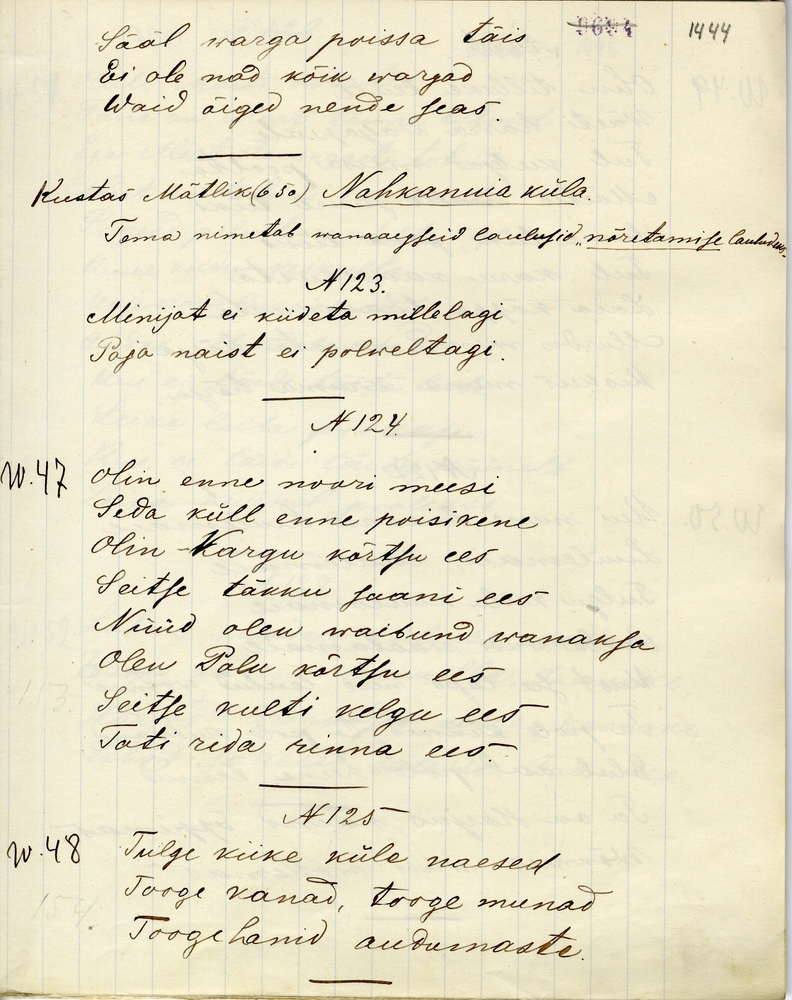 1444
Sääl warga poissa täis
Ei ole nad kõik wargad
Waid õiged nende seas.
Kustas Mätlik (650) Nahkanuia küla.
Tema nimetab wanaaegseid laulusid „nõretamise lauludeks.
N 123.
Minijat ei kiideta millelagi
Poja naist ei polweltagi.
N 124.
W.47 Olin enne noori meesi
Seda küll enne poisikene
Olin Kargu kõrtsu ees
Seitse täkku saani ees
Nüüd olen waibund wanaksa
Olen Palu kõrtsu ees
Seitse kulti kelgu ees
Tati rida rinna ees.
N 125
W.48 Tulge kiike küla naesed
Tooge kanad, tooge munad
Tooge hanid audumaste.